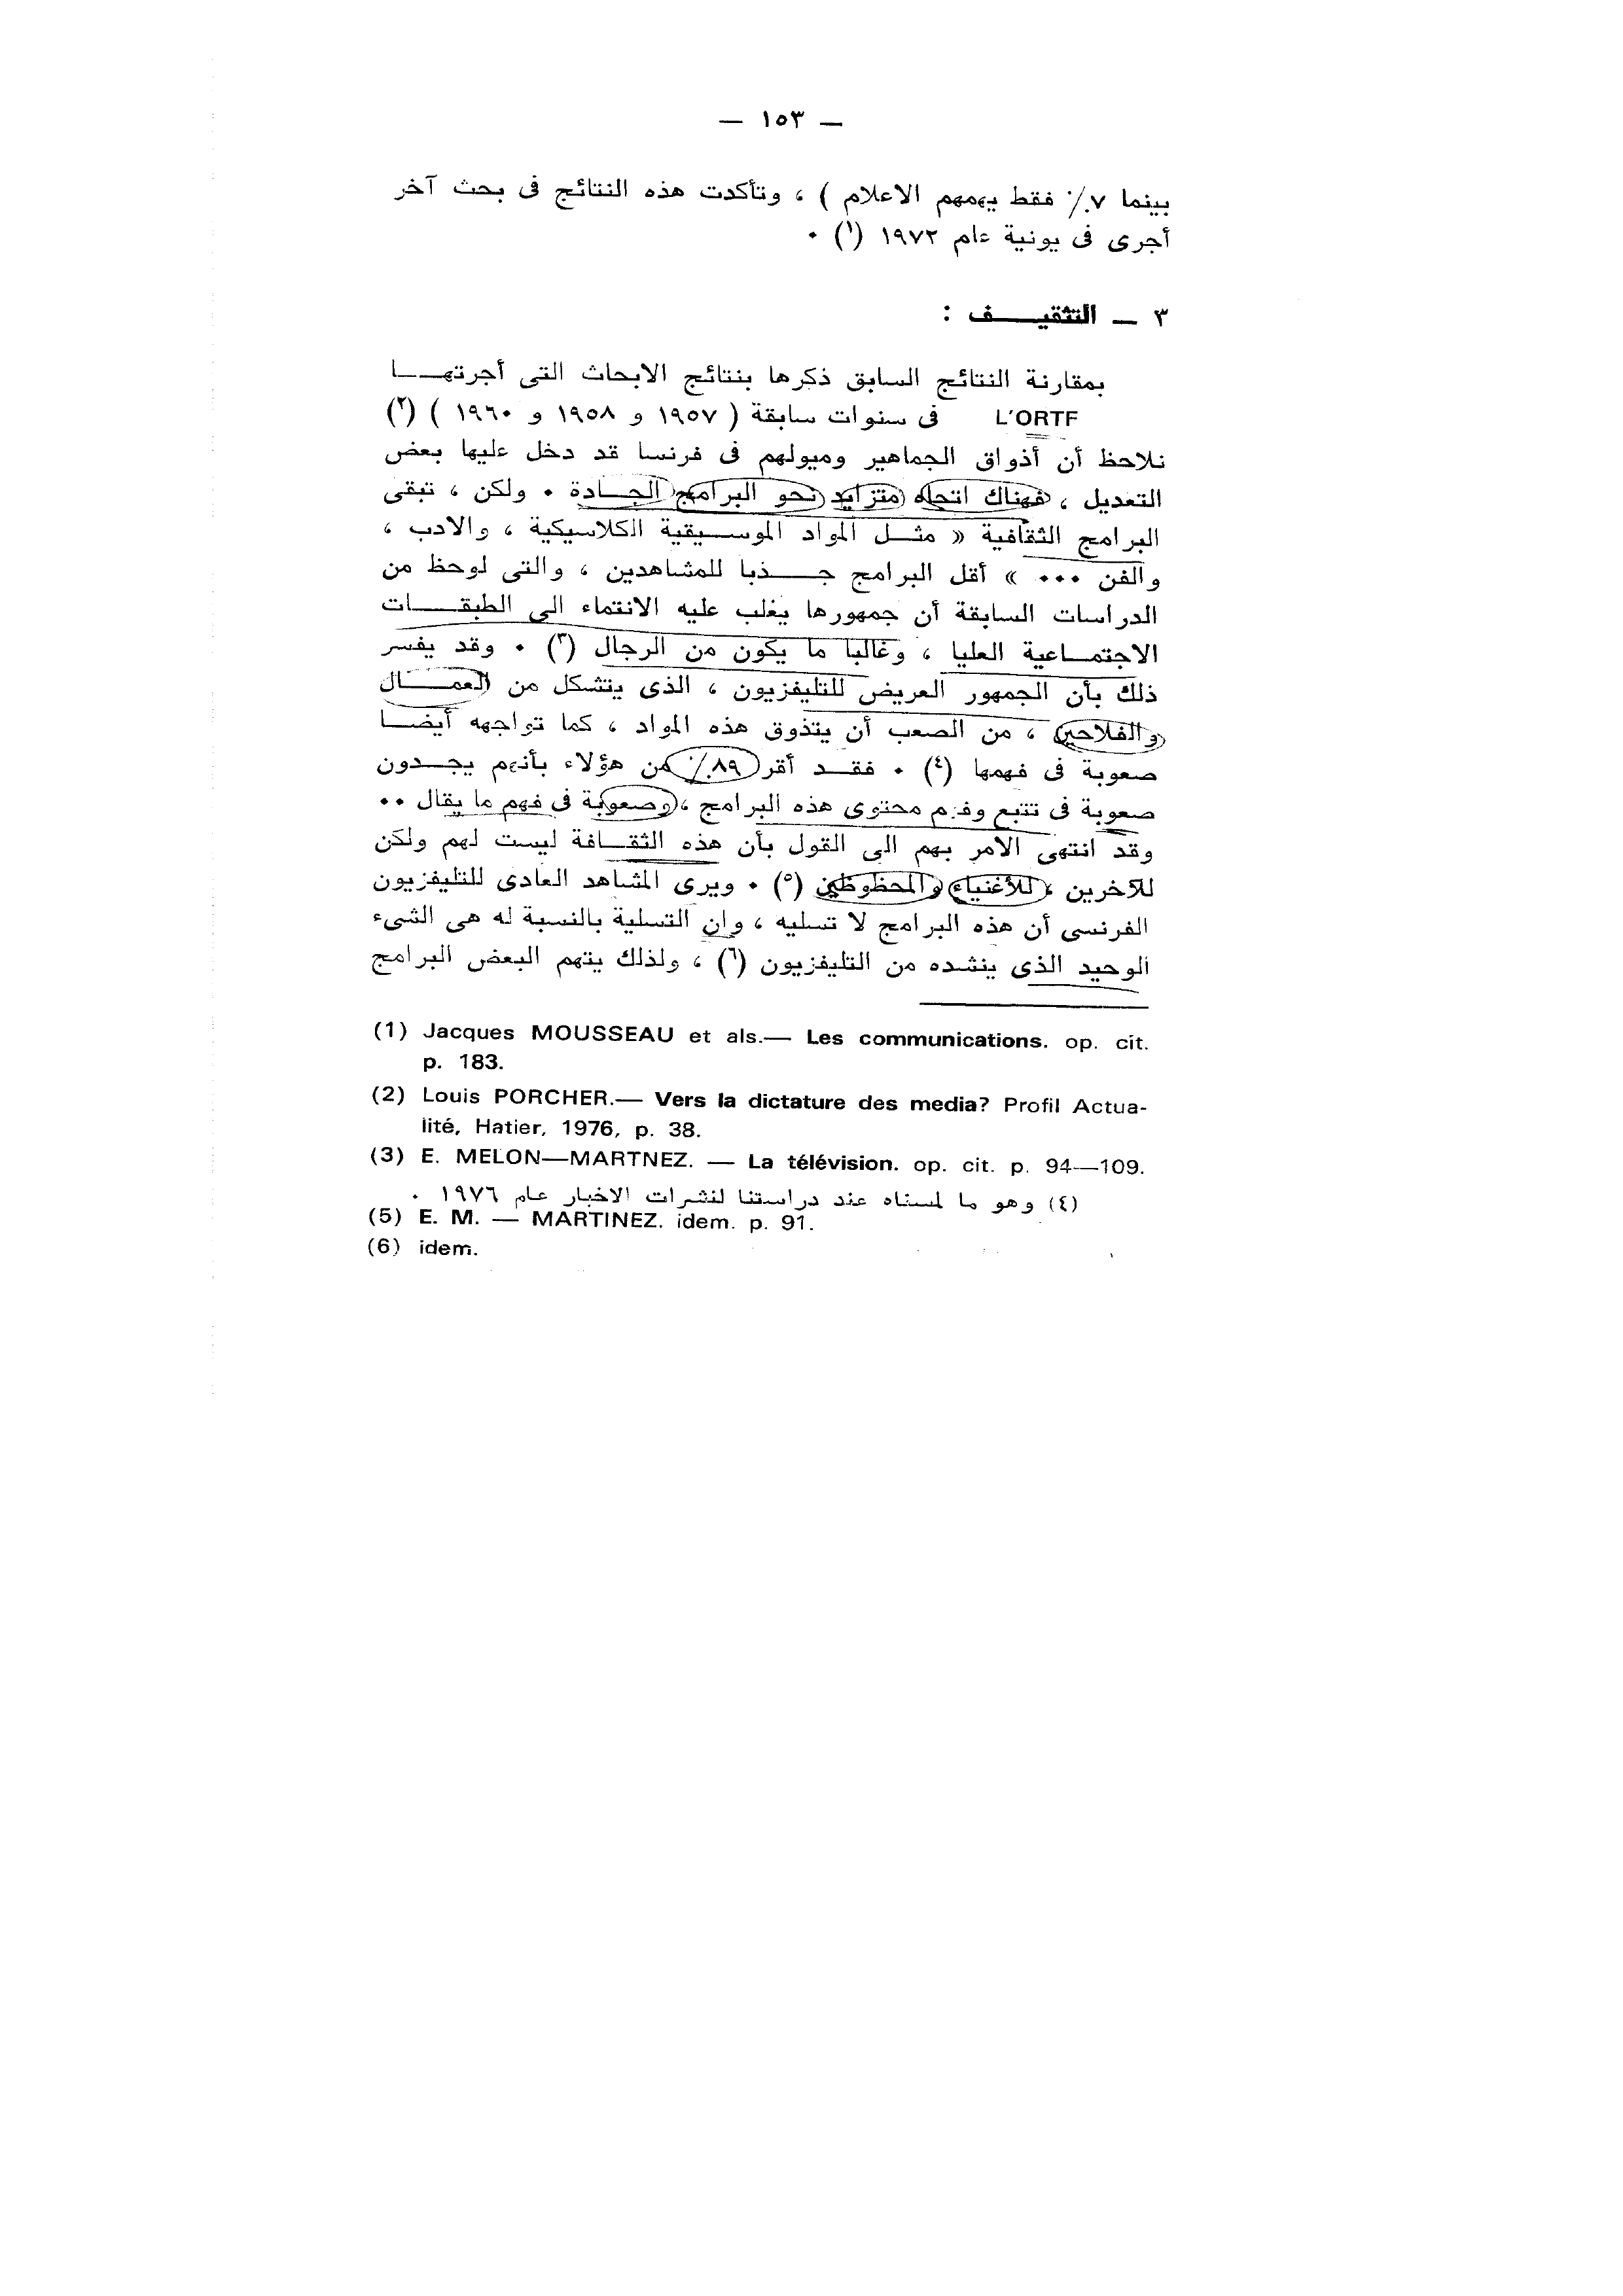 — ١٥٣ —
بينما ٧٪ فقط يهمهم الاعلام ) ، وتأكدت هذه النتائج فى بحث آخر
أجرى فى يونية عام ١٩٧٢ (١) ٠
٣ — التثقيـــــف :
بمقارنة النتائج السابق ذكرها بنتائج الابحاث التى أجرتهـــا
L'ORTF فى سنوات سابقة ( ١٩٥٧ و ١٩٥٨ و ١٩٦٠ ) (٢)
نلاحظ أن أذواق الجماهير وميولهم فى فرنسا قد دخل عليها بعض
التعديل ، فهناك اتجاه متزايد نحو البرامج الجــادة ٠ ولكن ، تبقى
البرامج الثقافية « مثــل المواد الموســيقية الكلاسيكية ، والادب ،
والفن ٠٠٠ » أقل البرامج جــــذبا للمشاهدين ، والتى لوحظ من
الدراسات السابقة أن جمهورها يغلب عليه الانتماء الى الطبقــــات
الاجتمــاعية العليا ، وغالبا ما يكون من الرجال (٣) ٠ وقد يفسر
ذلك بأن الجمهور العريض للتليفزيون ، الذى يتشكل من العمــــال
والفلاحين ، من الصعب أن يتذوق هذه المواد ، كما تواجهه أيضــا
صعوبة فى فهمها (٤) ٠ فقــد أقر ٨٩٪ من هؤلاء بأنهم يجــدون
صعوبة فى تتبع وفهم محتوى هذه البرامج ، وصعوبة فى فهم ما يقال ٠٠
وقد انتهى الامر بهم الى القول بأن هذه الثقــافة ليست لهم ولكن
للآخرين ، للأغنياء والمحظوظين (٥) ٠ ويرى المشاهد العادى للتليفزيون
الفرنسى أن هذه البرامج لا تسليه ، وان التسلية بالنسبة له هى الشىء
الوحيد الذى ينشده من التليفزيون (٦) ، ولذلك يتهم البعض البرامج
(1) Jacques MOUSSEAU et als.— Les communications. op. cit.
p. 183.
(2) Louis PORCHER.— Vers la dictature des media? Profil Actua-
lité, Hatier, 1976, p. 38.
(3) E. MELON—MARTNEZ. — La télévision. op. cit. p. 94—109.
(٤) وهو ما لمسناه عند دراستنا لنشرات الاخبار عام ١٩٧٦ ٠
(5) E. M. — MARTINEZ. idem. p. 91.
(6) idem.